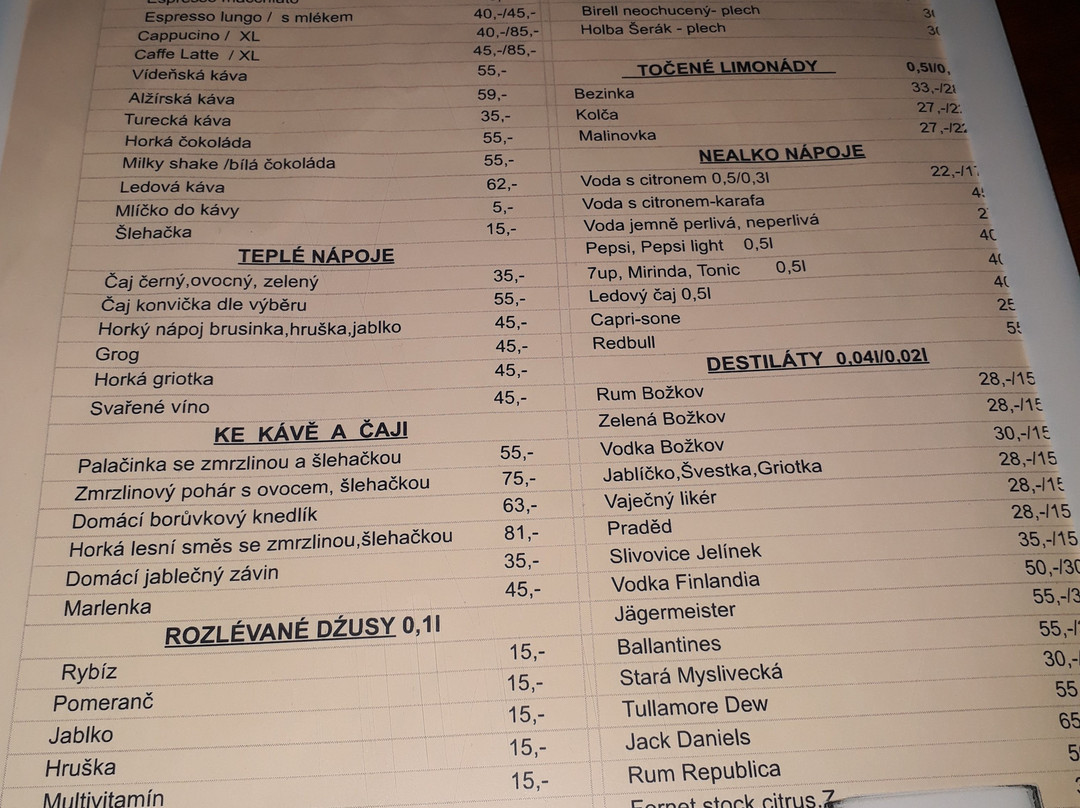 Espresso lungo / s mlékem 40,-/45,-
Cappucino / XL 40,-/85,-
Caffe Latte / XL 45,-/85,-
Vídeňská káva 55,-
Alžírská káva 59,-
Turecká káva 35,-
Horká čokoláda 55,-
Milky shake /bílá čokoláda 55,-
Ledová káva 62,-
Mlíčko do kávy 5,-
Šlehačka 15,-
TEPLÉ NÁPOJE
Čaj černý,ovocný, zelený 35,-
Čaj konvička dle výběru 55,-
Horký nápoj brusinka,hruška,jablko 45,-
Grog 45,-
Horká griotka 45,-
Svařené víno 45,-
KE KÁVĚ A ČAJI
Palačinka se zmrzlinou a šlehačkou 55,-
Zmrzlinový pohár s ovocem, šlehačkou 75,-
Domácí borůvkový knedlík 63,-
Horká lesní směs se zmrzlinou,šlehačkou 81,-
Domácí jablečný závin 35,-
Marlenka 45,-
ROZLÉVANÉ DŽUSY 0,1l
Rybíz 15,-
Pomeranč 15,-
Jablko 15,-
Hruška 15,-
Multivitamín 15,-
Birell neochucený- plech
Holba Šerák - plech
TOČENÉ LIMONÁDY 0,5l/0,
Bezinka 33,-/2
Kolča 27,-/2
Malinovka 27,-/2
NEALKO NÁPOJE
Voda s citronem 0,5/0,3l 22,-/1
Voda s citronem-karafa 4
Voda jemně perlivá, neperlivá 2
Pepsi, Pepsi light 0,5l 40
7up, Mirinda, Tonic 0,5l 40
Ledový čaj 0,5l 40
Capri-sone 25
Redbull 55
DESTILÁTY 0,04l/0,02l
Rum Božkov 28,-/15
Zelená Božkov 28,-/15
Vodka Božkov 30,-/15
Jablíčko,Švestka,Griotka 28,-/15
Vaječný likér 28,-/15
Praděd 28,-/15
Slivovice Jelínek 35,-/15
Vodka Finlandia 50,-/30
Jägermeister 55,-/3
Ballantines 55,-/
Stará Myslivecká 30,-/
Tullamore Dew 55
Jack Daniels 65
Rum Republica 5
Fernet stock citrus,Z